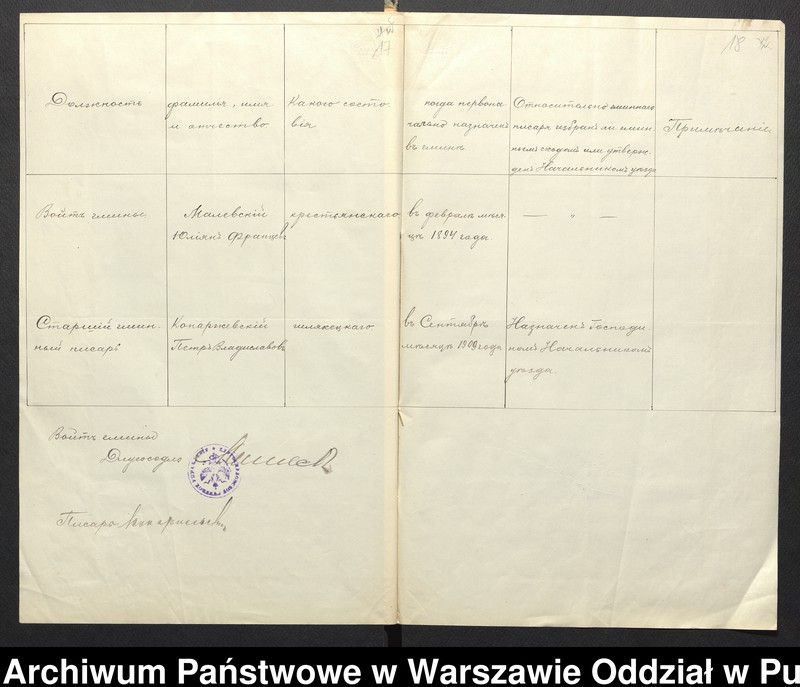 17
18
Должность
фамилія, имя
и отчество
какого состо-
вія
когда первона
чально назначенъ
въ гминѣ
Относительно гминнаго
писаря избранъ ли гмин
нымъ сходомъ или утверж-
денъ Начальникомъ уѣзда
Примѣчаніе
Войтъ гмины
Малевскій
Юліянъ Францевъ
крестьянскаго
въ февралѣ мѣся
цѣ 1894 года.
— " —
Старшій гмин-
ный писарь
Копаржевскій
Петръ Владиславовъ
шляхецкаго
въ Сентябрѣ
мѣсяцѣ 1909 года
Назначенъ Господи
номъ Начальникомъ
уѣзда.
Войтъ гмины
Длугосядло
Писарь
Archiwum Państwowe w Warszawie Oddział w Pu